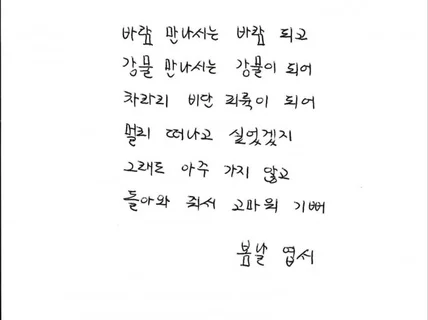 바람 만나서는 바람 되고
강물 만나서는 강물이 되어
차라리 비단 피륙이 되어
멀리 떠나고 싶었겠지
그래도 아주 가지 않고
돌아와 줘서 고마워 기뻐
봄날 엽서